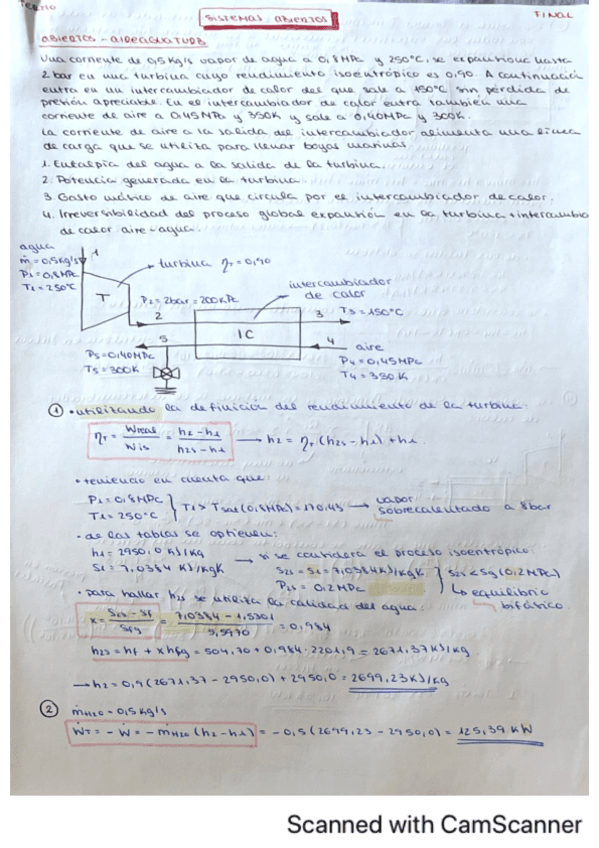 TERMO
SISTEMAS ABIERTOS
FINAL
ABIERTOS - AIREAGUATURB
Una corriente de 0,5 Kg/s vapor de agua a 0,8 MPa y 250°C, se expansiona hasta
2 bar en una turbina cuyo rendimiento isoentrópico es 0,90. A continuación
entra en un intercambiador de calor del que sale a 150°C sin pérdida de
presión apreciable. En el intercambiador de calor entra también una
corriente de aire a 0,45 MPa y 350K y sale a 0,40 MPa y 300K.
La corriente de aire a la salida del intercambiador alimenta una línea
de carga que se utiliza para llenar boyas marinas.
1. Entalpía del agua a la salida de la turbina.
2. Potencia generada en la turbina.
3. Gasto másico de aire que circula por el intercambiador de calor.
4. Irreversibilidad del proceso global expansión en la turbina + intercambio
de calor aire - agua.
agua
ṁ = 0,5 Kg/s
P1 = 0,8 MPa
T1 = 250°C
1
turbina ηT = 0,90
T
P2 = 2bar = 200 KPa
2
intercambiador
de calor
IC
3 T3 = 150°C
4 aire
P4 = 0,45 MPa
T4 = 350 K
5
P5 = 0,40 MPa
T5 = 300K
① • utilizando la definición del rendimiento de la turbina:
ηT = Wreal / Wis = h2 - h1 / h2s - h1 → h2 = ηT (h2s - h1) + h1.
• teniendo en cuenta que:
P1 = 0,8 MPa
T1 = 250°C } T1 > Tsat (0,8 MPa) = 170,43 → vapor
sobrecalentado a 8bar
• de las tablas se obtienen:
h1 = 2950,0 KJ/Kg
S1 = 7,0384 KJ/KgK
→ si se considera el proceso isoentrópico:
S2s = S1 = 7,0384 KJ/KgK
P2s = 0,2 MPa } S2s < Sg (0,2 MPa)
↳ equilibrio
bifásico.
• para hallar h2s se utiliza la calidad del agua:
x = S2s - Sf / Sfg = 7,0384 - 1,5301 / 5,5970 = 0,984
h2s = hf + x hfg = 504,70 + 0,984 · 2201,9 = 2671,37 KJ/Kg
→ h2 = 0,9 (2671,37 - 2950,0) + 2950,0 = 2699,23 KJ/Kg
② ṁH2O = 0,5 Kg/s
ẆT = - Ẇ = - ṁH2O (h2 - h1) = - 0,5 (2699,23 - 2950,0) = 125,39 KW
Scanned with CamScanner